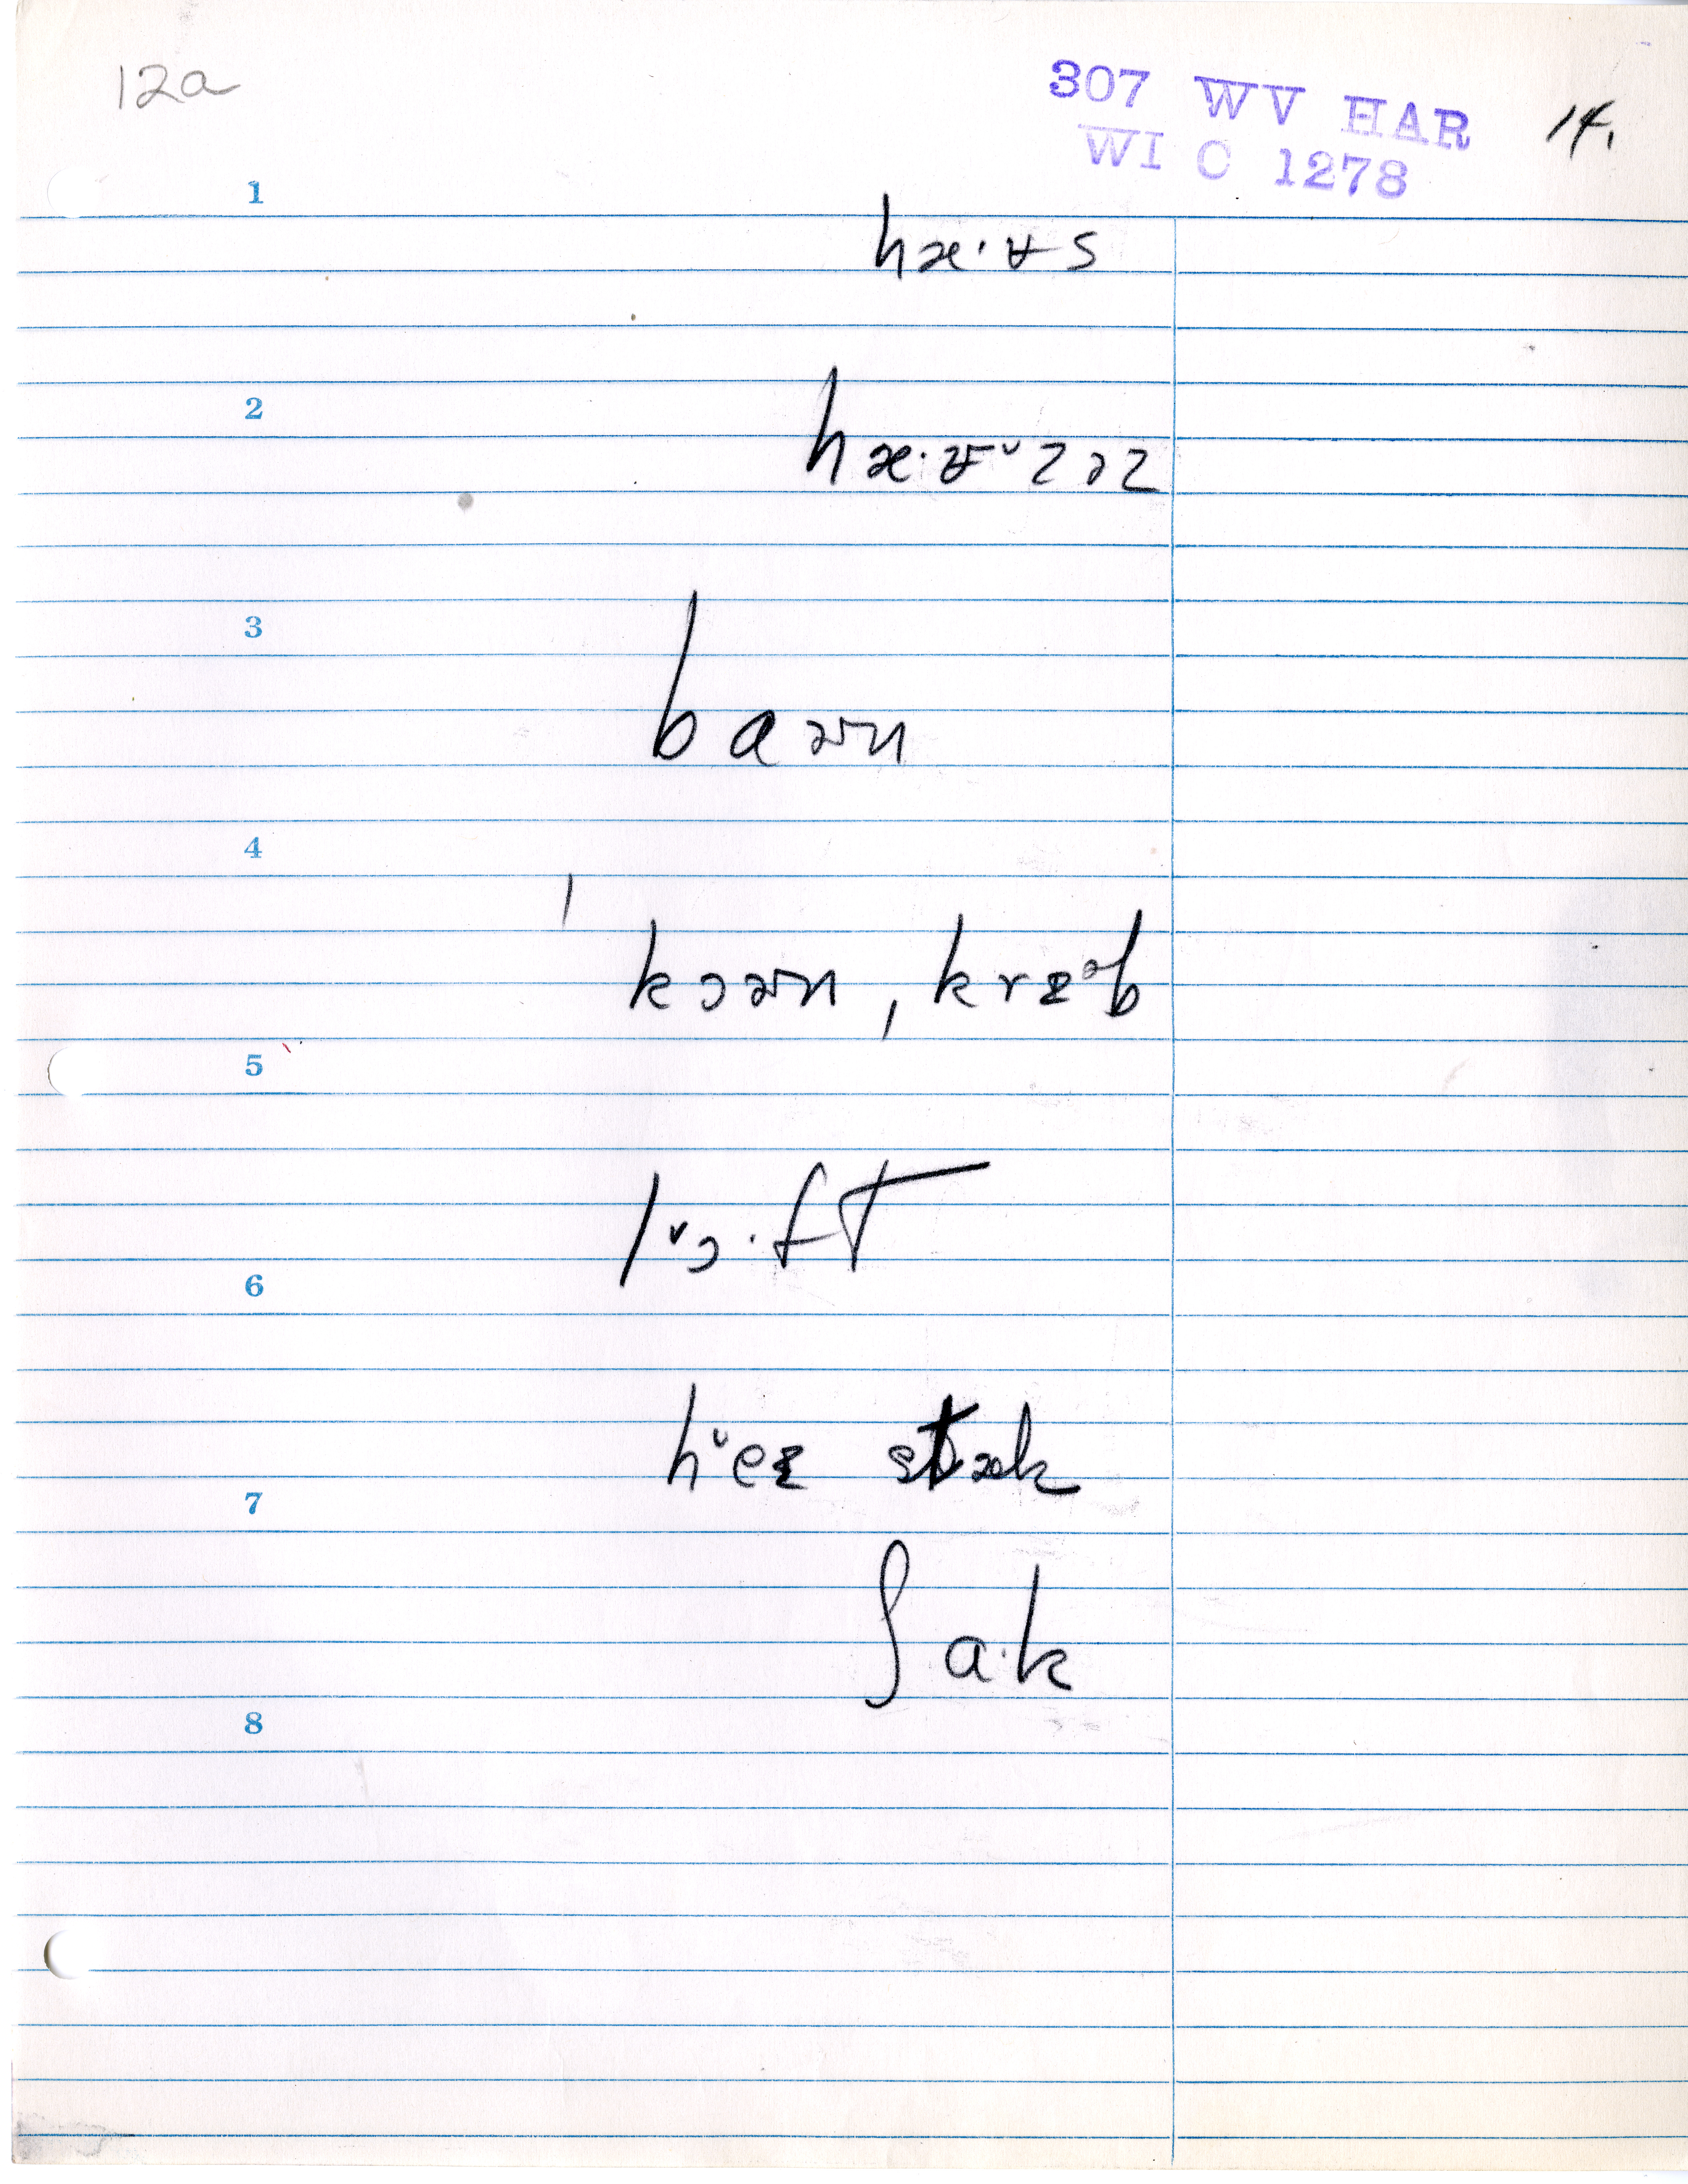 12a
307 WV HAR 14.
WI C 1278
1
hæ·ʉs
2
hæ·ʉ˅zəz
3
baɚn
4
kɔɚn, krɪᵊb
5
l˅ɔ·ft
6
h˅eɪ stæk
7
ʃa·k
8